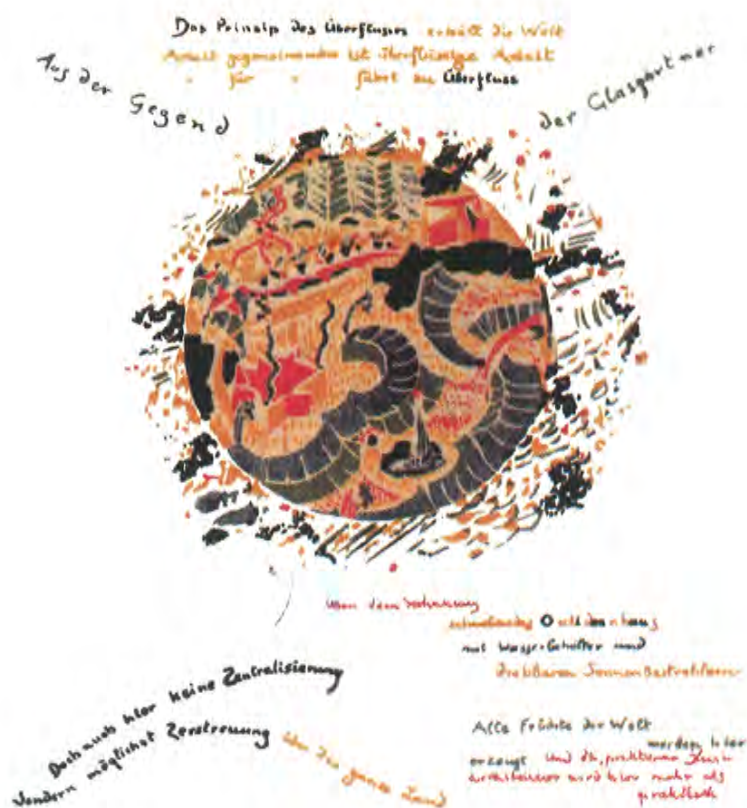 Das Prinzip des Überflusses erhält die Welt
Arbeit gegeneinander ist überflüssige Arbeit
" für " führt zu Überfluss
Aus der Gegend
der Glasgärtner
über dem
schwebendes Orchideenhaus
mit Wasserbehälter und
drehbaren Sonnenbestrahlern
Doch auch hier keine Zentralisierung
Sondern möglichst Zerstreuung über das ganze Land
Alle Früchte der Welt
werden hier
erzeugt Und die
wird hier mehr als
praktisch